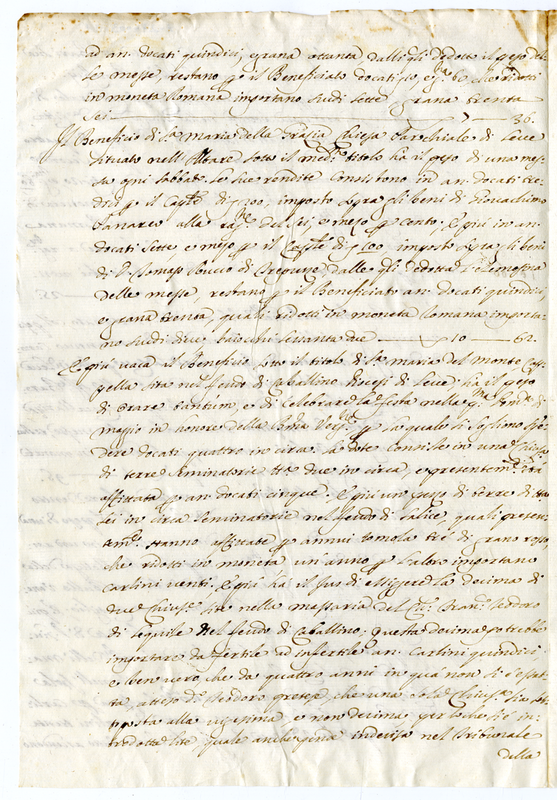 ad an. docati quindici, e grana ottanta dalli q.li dedotto il peso del
le messe, restano p il Beneficiato docati 10, e g.na 60 che ridotti
in moneta Romana importano scudi sette e grana trenta
sei ——— 7 — 36.
Il Beneficio di S.a Maria della Grazia Chiesa Parochiale di Lecce
situato nell'Altare sotto il med.o titolo ha il peso di una mes
sa ogni sabbato. Le sue rendite consistono in an. docati tre
dici p il Cap.le di 200, imposto sopra gli beni di
Panareo alla rag.ne del sei, e mezo p cento. E più in an.
docati sette e mezo p il Cap.le di 100 imposto sopra li beni
di Trepuzze, dalle q.li dedotta l'elemosina
delle messe restano p il Beneficiato an. docati quindici,
e grana trenta, quali ridotti in moneta Romana importa
no scudi dieci baiocchi sessanta due ——— 10 — 62.
E più vaca il Beneficio sotto il titolo di S.a Maria del Monte Cap
pella sita nel feudo di Caballino Diocesi di Lecce ha il peso
di orare tantùm, e di celebrare la festa nella p.ma Dom.ca di
maggio in honore della Verg.e p la quale si sogliono spen
dere docati quattro in circa. La dote consiste in una Chiusa
di terre seminatorie tt.a due in circa, e presentem.te sta
affittata p an. docati cinque. E più un pezzo di terre di tt.a
sei in circa seminatorie nel feudo di Salice, quali presen
tem.te stanno affittate p annui tomola tré di grano rosso,
che ridotti in moneta un'anno p l'altro importano
carlini venti. E più há il jus di essiggere la decima di
due Chiuse site nella massaria del Teodoro
di Lequile nel feudo di Caballino; questa decima potrebbe
importare da fertile ad infertile an. Carlini quindici,
e ben vero che da quattro anni in quà non si è esat
ta, atteso di Teodoro pretende, che una sola Chiusa sia sot
toposta alla vigesima e non decima, per lo che si è in
trodotta lite quale anche pena indecisa nel Tribunale
della